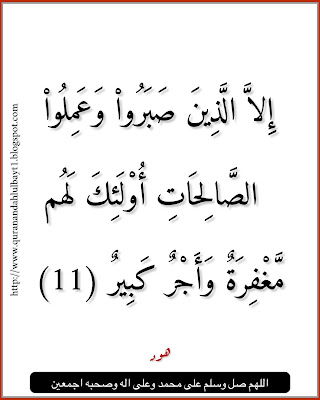 إِلاَّ الَّذِينَ صَبَرُواْ وَعَمِلُواْ
الصَّالِحَاتِ أُوْلَئِكَ لَهُم
مَّغْفِرَةٌ وَأَجْرٌ كَبِيرٌ (11)
هود
اللهم صل وسلم على محمد وعلى اله وصحبه اجمعين
http://www.quranandahlulbayt1.blogspot.com